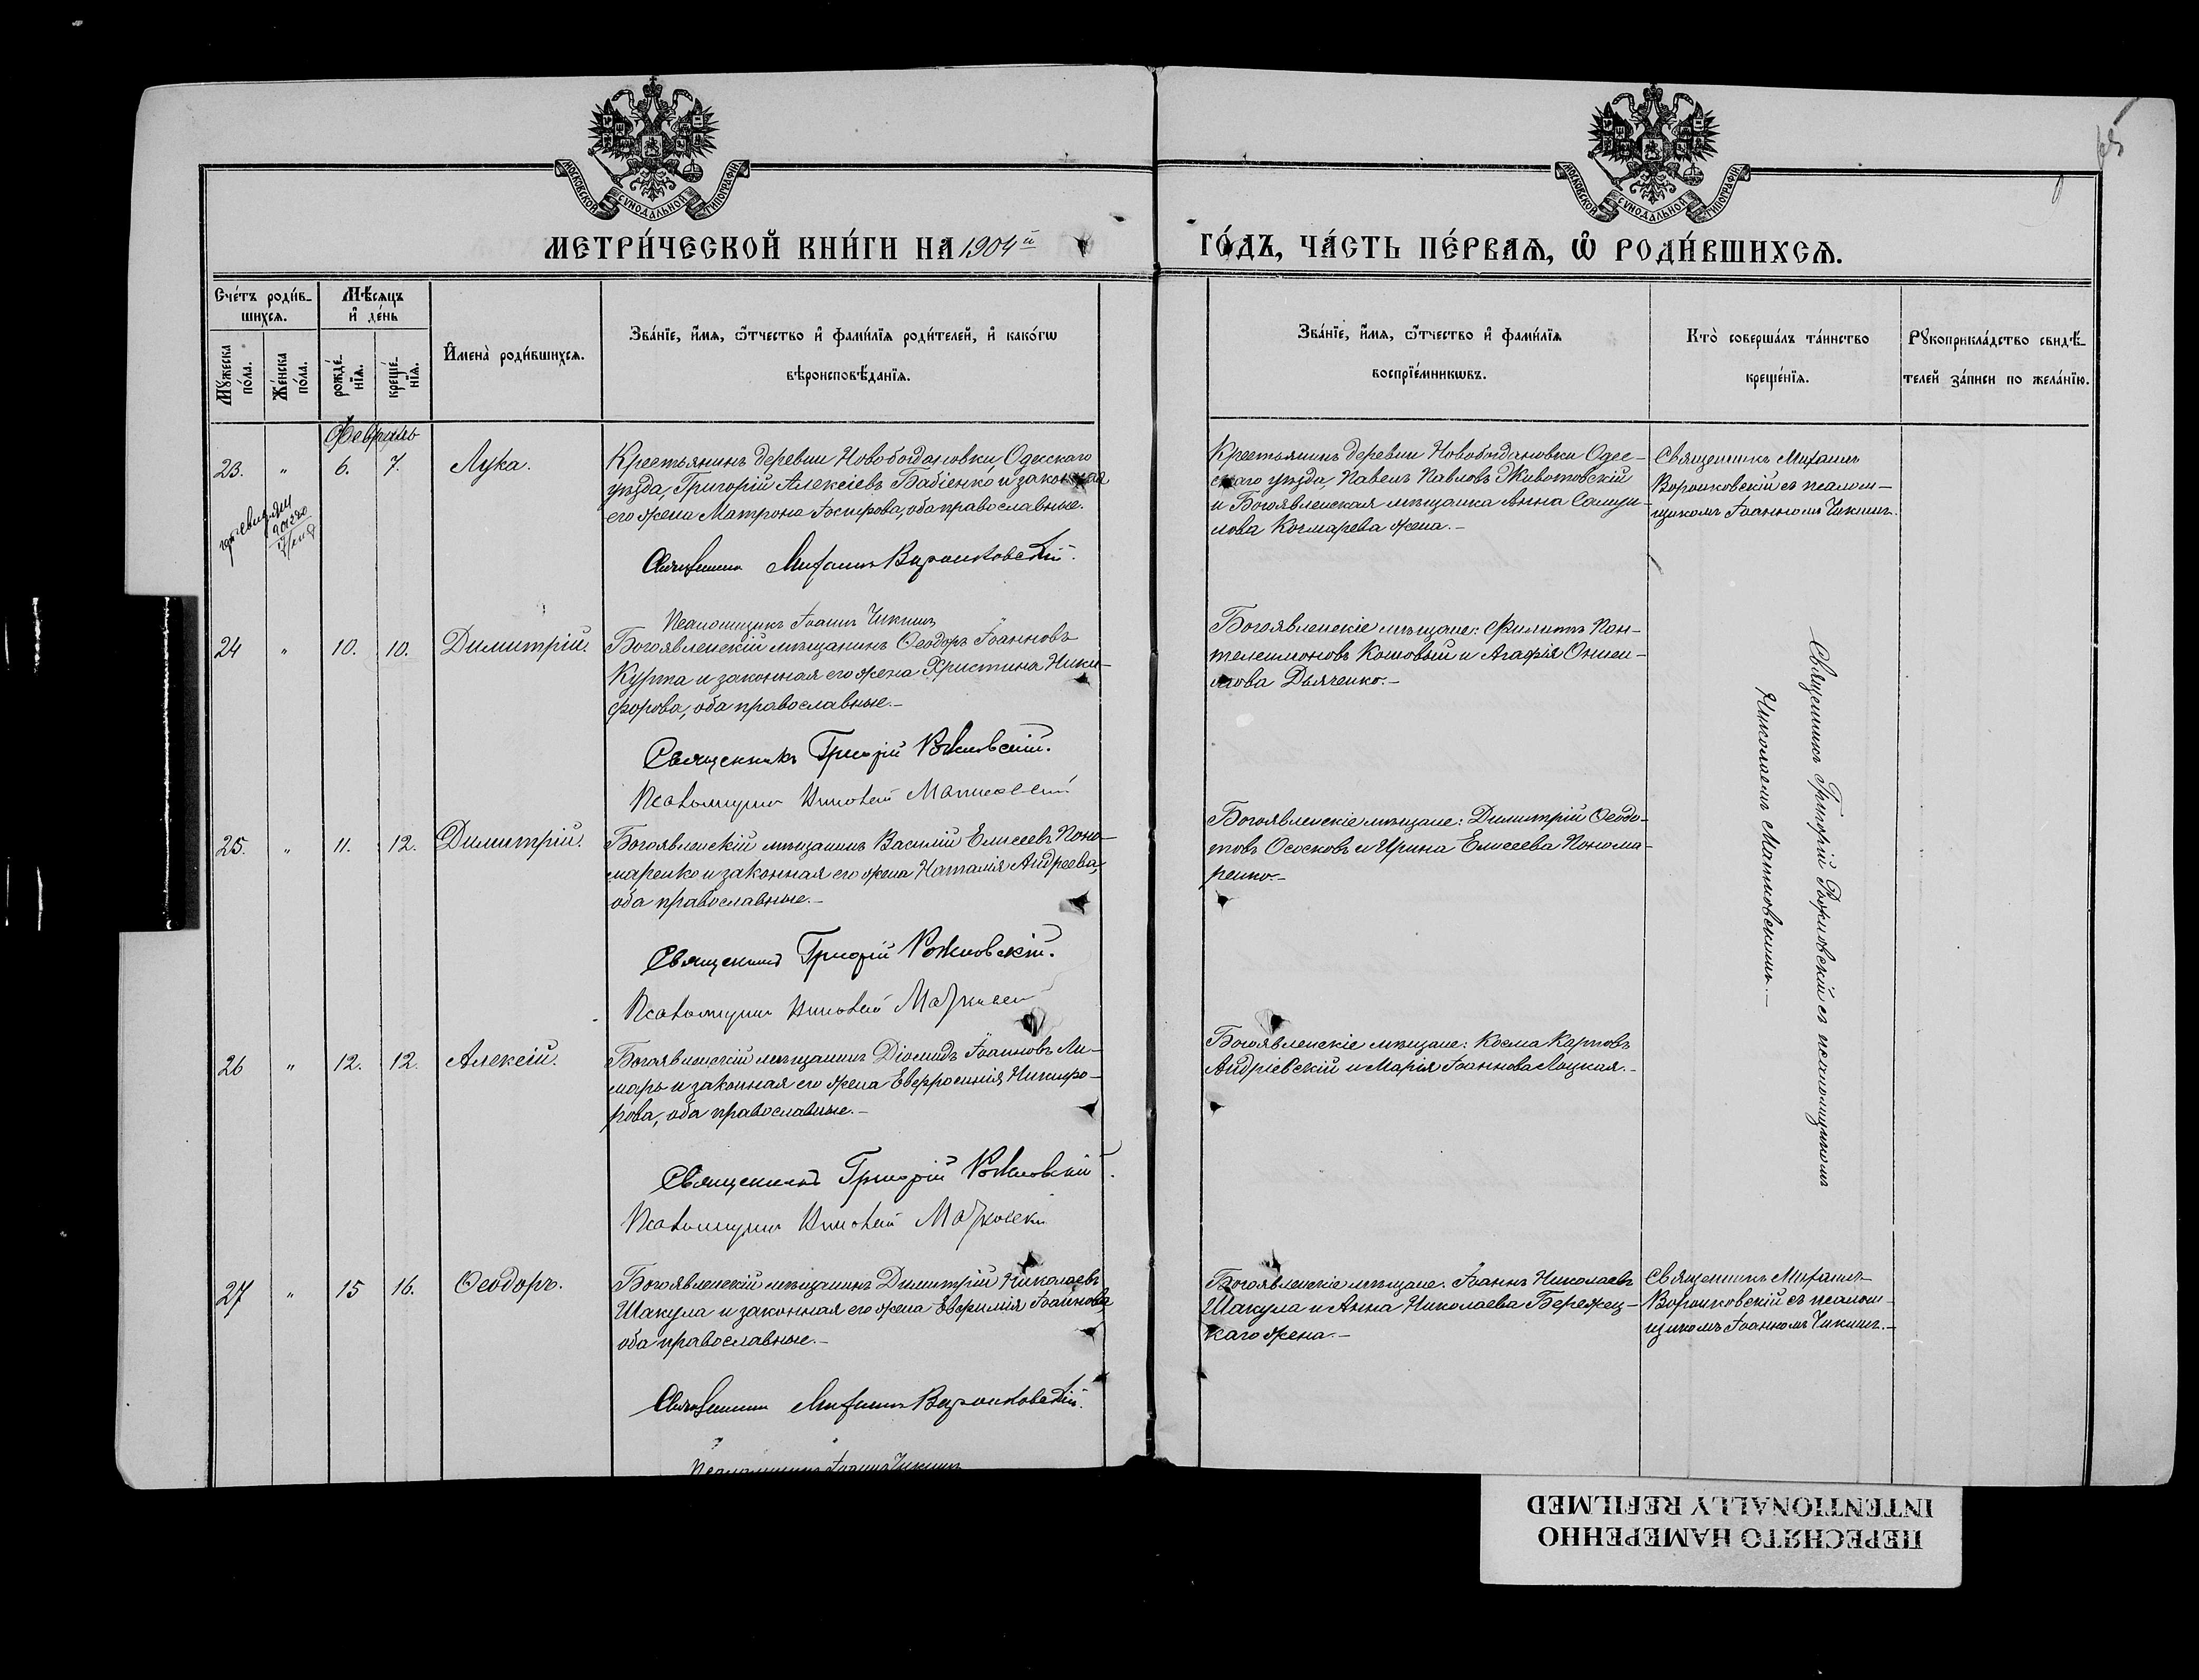 65
МОСКОВСКОЙ СУНОДАЛЬНОЙ ТИПОГРАФІИ
МОСКОВСКОЙ СУНОДАЛЬНОЙ ТИПОГРАФІИ
МЕТРИ́ЧЕСКОЙ КНИ́ГИ НА 1904й
ГО́ДЪ, ЧА́СТЬ ПЕ́РВАѦ, Ѡ҆ РОДИ́ВШИХСѦ.
Сче́тъ роди́в-
шихсѧ.
Мѣ́сѧцъ
и҆ де́нь
Мꙋ́жеска
по́ла.
Же́нска
по́ла.
рожде́-
нїѧ.
креще́-
нїѧ.
И҆мена̀ роди́вшихсѧ.
Зва́нїе, и҆́мѧ, ѻ҆́тчество и҆ фами́лїѧ роди́телей, и҆ како́гѡ
вѣроисповѣ́данїѧ.
Зва́нїе, и҆́мѧ, ѻ҆́тчество и҆ фами́лїѧ
воспрїе́мникѡвъ.
Кто̀ соверша́лъ та́инство
креще́нїѧ.
Рꙋкоприкла́дство свидѣ́-
телей за́писи по жела́нїю.
Февраль
23.
"
6.
7.
Лука.
Крестьянинъ деревни Новобогдановки, Одесскаго
уѣзда, Григорій Алексіевъ Бабіенко и законная
его жена Матрона Іосифова, оба православные.
Священникъ Михаилъ Воронковскій.
Псаломщикъ Іоаннъ Чикинъ
Крестьянинъ деревни Новобогдановки Одес-
скаго уѣзда, Павелъ Павловъ Животовскій
и Богоявленская мѣщанка Анна Самуи-
лова Кочмарева жена.-
Священникъ Михаилъ
Воронковскій съ псалом-
щикомъ Іоанномъ Чикинъ.
24
"
10.
10.
Димитрій.
Богоявленскій мѣщанинъ Ѳеодоръ Іоанновъ
Курта и законная его жена Христина Ники-
форова, оба православные.-
Священникъ Григорій Рожновскій.
Псаломщикъ Николай
Богоявленскіе мѣщане: Филиппъ Пан-
телеимоновъ Кошовый и Агафія Ониси-
мова Дьяченко.-
Священникъ Григорій Рожновскій съ псаломщикомъ
Николаемъ
25.
"
11.
12.
Димитрій.
Богоявленскій мѣщанинъ Василій Елисеевъ Поно-
маренко и законная его жена Наталія Андреева,
оба православные.-
Священникъ Григорій Рожновскій.
Псаломщикъ Николай
Богоявленскіе мѣщане: Димитрій Ѳеодо-
товъ Ососковъ и Ирина Елисеева Понома-
ренко.-
26
"
12.
12.
Алексій.
Богоявленскій мѣщанинъ Діомидъ Іоанновъ Ли-
марь и законная его жена Евфросинія Никифо-
рова, оба православные.-
Священникъ Григорій Рожновскій.
Псаломщикъ Николай
Богоявленскіе мѣщане: Косма Карповъ
Андріевскій и Марія Іоаннова Лоцкая.-
27
"
15
16.
Ѳеодоръ.
Богоявленскій мѣщанинъ Димитрій Николаевъ
Шакула и законная его жена Евфимія Іоаннова
оба православные.-
Священникъ Михаилъ Воронковскій.
Псаломщикъ Іоаннъ Чикинъ
Богоявленскіе мѣщане: Іоаннъ Николаевъ
Шакула и Анна Николаева Бережец-
каго жена.-
Священникъ Михаилъ
Воронковскій съ псалом-
щикомъ Іоанномъ Чикинъ.-
ПЕРЕСНЯТО НАМЕРЕННО
INTENTIONALLY REFILMED